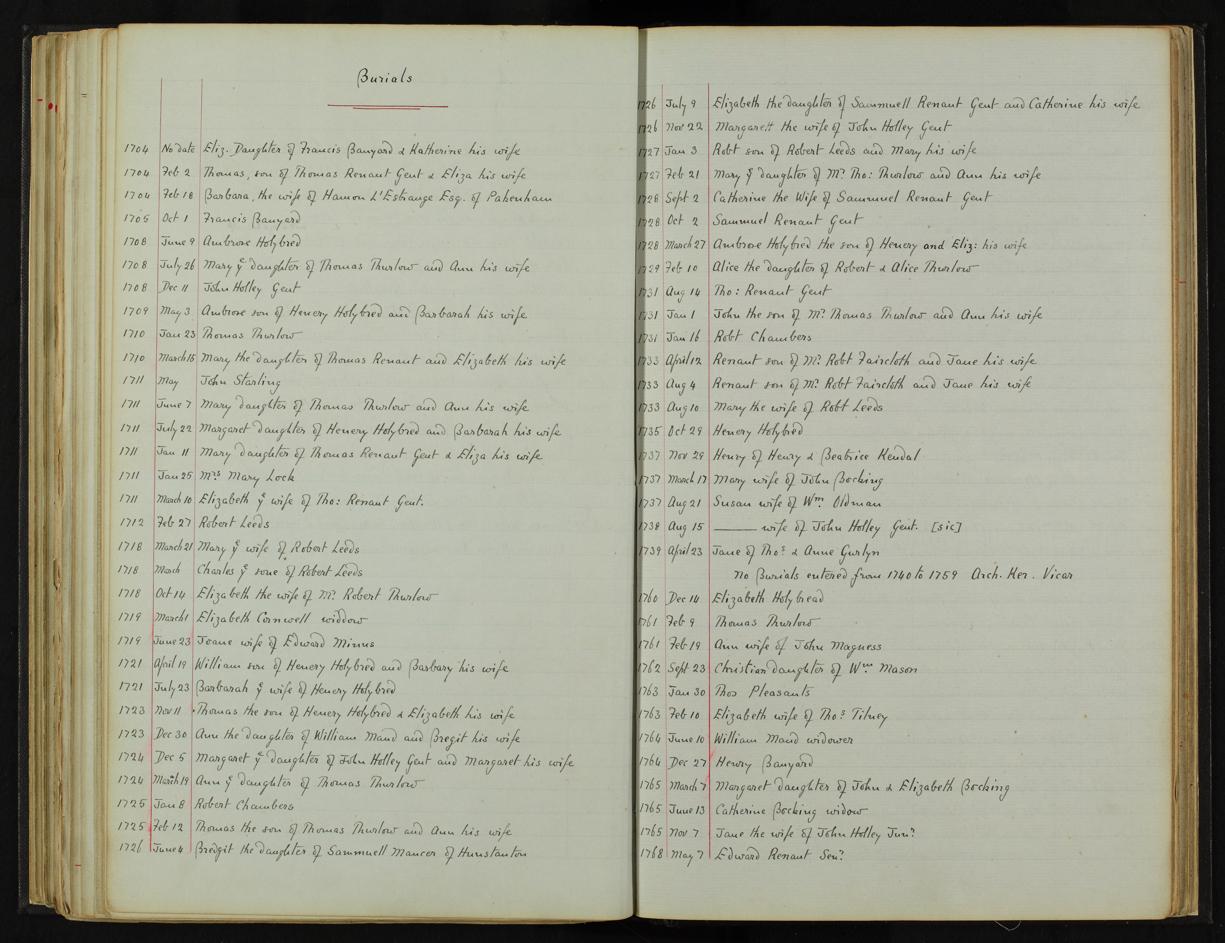 Burials
1704 No date Eliz. Daughter of Francis Banyard & Katherine his wife
1704 Feb 2 Thomas, son of Thomas Renant Gent & Eliza his wife
1704 Feb 18 Barbara, the wife of Hamon L'Estrange Esq. of Pakenham
1705 Oct 1 Francis Banyard
1708 June 9 Ambrose Holybred
1708 July 26 Mary ye daughter of Thomas Thurlow and Ann his wife
1708 Dec 11 John Holley Gent
1709 May 3 Ambrose son of Henery Holybred and Barbarah his wife
1710 Jan 23 Thomas Thurlow
1710 March 15 Mary the daughter of Thomas Renant and Elizabeth his wife
1711 May John Starling
1711 June 7 Mary daughter of Thomas Thurlow and Ann his wife
1711 July 22 Margaret daughter of Henery Holybred and Barbarah his wife
1711 Jan 11 Mary daughter of Thomas Renant Gent & Eliza his wife
1711 Jan 25 Mrs Mary Lock
1711 March 10 Elizabeth ye wife of Tho: Renant Gent.
1712 Feb 27 Robert Leeds
1718 March 21 Mary ye wife of Robert Leeds
1718 March Charles ye sone of Robert Leeds
1718 Oct 14 Elizabeth the wife of Mr. Robert Thurlow
1719 March 1 Elizabeth Cornwell widdow
1719 June 23 Joane wife of Edward Minns
1721 April 19 William son of Henery Holybred and Barbary his wife
1721 July 23 Barbarah ye wife of Henery Holybred
1723 Nov 11 Thomas the son of Henery Holybred & Elizabeth his wife
1723 Dec 30 Ann the daughter of William Mand and Bregit his wife
1724 Dec 5 Margaret ye daughter of John Holley Gent and Margaret his wife
1724 March 19 Ann ye daughter of Thomas Thurlow
1725 Jan 8 Robert Chambers
1725 Feb 12 Thomas the son of Thomas Thurlow and Ann his wife
1726 June 4 Bredgit the daughter of Sammuell Mancor of Hunstanton
1726 July 9 Elizabeth the daughter of Sammuell Renant Gent and Catherine his wife
1726 Nov 22 Margarett the wife of John Holley Gent
1727 Jan 3 Robt son of Robert Leeds and Mary his wife
1727 Feb 21 Mary ye daughter of Mr. Tho: Thurlow and Ann his wife
1728 Sept 2 Catherine the Wife of Sammuel Renant Gent
1728 Oct 2 Sammuel Renant Gent
1728 March 27 Ambrose Holybred the son of Henery and Eliz: his wife
1729 Feb 10 Alice the daughter of Robert & Alice Thurlow
1731 Aug 14 Tho: Renant Gent
1731 Jan 1 John the son of Mr. Thomas Thurlow and Ann his wife
1731 Jan 16 Robt Chambers
1733 April 12 Renant son of Mr. Robt Faircloth and Jane his wife
1733 Aug 4 Renant son of Mr. Robt Faircloth and Jane his wife
1733 Aug 10 Mary the wife of Robt Leeds
1735 Oct 29 Henery Holybred
1737 Nov 29 Henry of Henry & Beatrice Kendal
1737 March 17 Mary wife of John Bocking
1737 Aug 21 Susan wife of Wm. Oldman
1738 Aug 15 ——— wife of John Holley Gent. [sic]
1739 April 23 Jane of Thos & Anne Gurlyn
No Burials entered from 1740 to 1759 Arch. Ker. Vicar
1760 Dec 14 Elizabeth Holybread
1761 Feb 9 Thomas Thurlow
1761 Feb 19 Ann wife of John Magness
1762 Sept 23 Christian daughter of Wm Mason
1763 Jan 30 Thos Pleasants
1763 Feb 10 Elizabeth wife of Thos Tilney
1764 June 10 William Mand widower
1764 Dec 27 Henry Banyard
1765 March 7 Margaret daughter of John & Elizabeth Bocking
1765 June 13 Catherine Bocking widow
1765 Nov 7 Jane the wife of John Holley Junr
1768 May 7 Edward Renant Senr